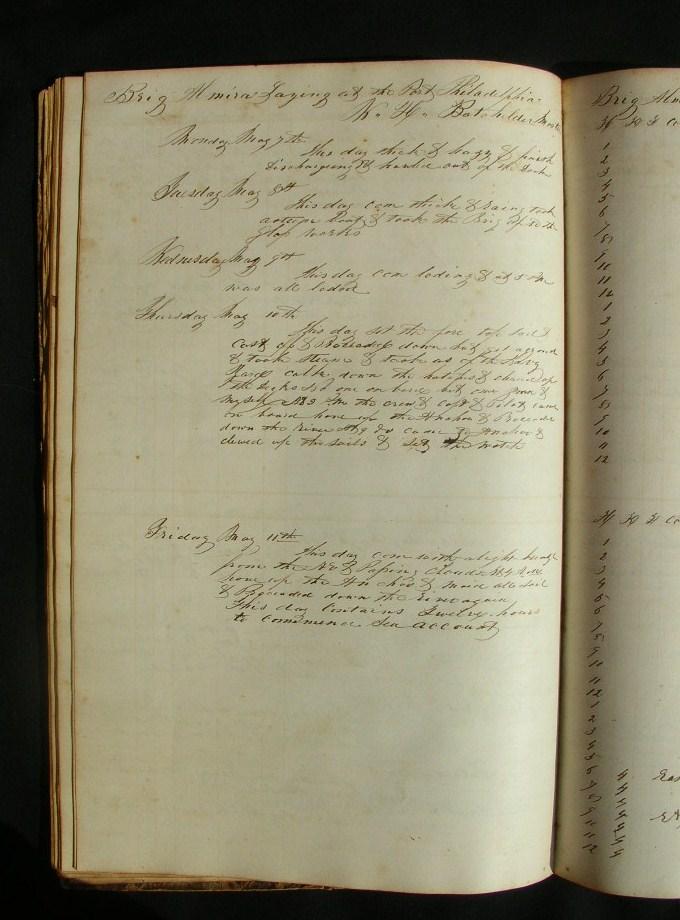 Brig Almira Laying at the Port Philadelphia
N. H. Batchelder Master
Monday May 7th
This day thick & hazy & finish
Discharging & hauld out of the Dock
Tuesday May 8th
This day com thick & Rainy took
a steam Boat & took the Brig up to the
Glap works
Wednesday May 9th
This day com loding & at 5 PM
was all loded
Thursday May 10th
This day set the fore top sail &
Cast of & Proceaded down but got aground
& took Steam & took as of the
down the
the Decks No one on bord but one man &
my self At 9 Pm the crew & Capt & Pilot came
on board hove up the Anchor & Proceaded
down the River At 9 30 came to Anchor &
clewed up the sails & Set the Watch
Friday May 11th
This day com with a light breeze
from the NE & Pasing Clouds At 4 Pm
hove up the Anchor & maid all sail
& Proceaded down the River again
This day Contains Twelve hours
to Commence Sea account
Brig Alm
H K F Co
1
2
3
4
5
6
7
8
9
10
11
12
1
2
3
4
5
6
7
8
9
10
11
12
H K F Co
1
2
3
4
5
6
7
8
9
10
11
12
1
2
3
4
5
6 4
7 4 Eas
8 4
9 4
10 4
11 4
12 4